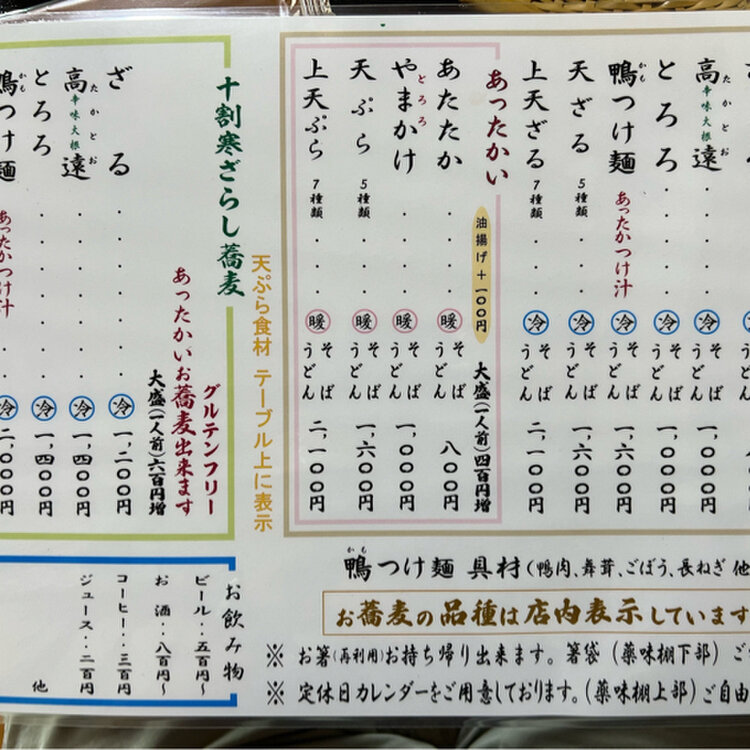 高遠
たかとお
辛味大根
・・・・㊀冷 1,000円
とろろ・・・・冷 そば うどん 一,〇〇〇円
鴨つけ麺 あったかつけ汁 冷 そば うどん 一,六〇〇円
かも
天ざる 5種類・・・冷 そば うどん 一,六〇〇円
上天ざる 7種類・・・冷 そば うどん 二,一〇〇円
あったかい 油揚げ+一〇〇円 大盛(一人前)四百円増
あたたか・・・・暖 そば うどん 八〇〇円
やまかけ・・・・暖 そば うどん 一,〇〇〇円
とろろ
天ぷら 5種類・・・暖 そば うどん 一,六〇〇円
上天ぷら 7種類・・・暖 そば うどん 二,一〇〇円
天ぷら食材 テーブル上に表示
十割寒ざらし蕎麦
グルテンフリー
あったかいお蕎麦出来ます
大盛(一人前)六百円増
ざる・・・・・冷 一,二〇〇円
高遠・・・・・冷 一,四〇〇円
たかとお
辛味大根
とろろ・・・・・冷 一,四〇〇円
鴨つけ麺 あったかつけ汁 冷 二,〇〇〇円
かも
鴨つけ麺 具材(鴨肉、舞茸、ごぼう、長ねぎ 他
かも
お蕎麦の品種は店内表示しています
※ お箸(再利用)お持ち帰り出来ます。箸袋(薬味棚下部)ご
※ 定休日カレンダーをご用意しております。(薬味棚上部)ご自由
お飲み物
ビール・・五百円〜
お酒・・八百円〜
コーヒー・・三百円
ジュース・・二百円
他